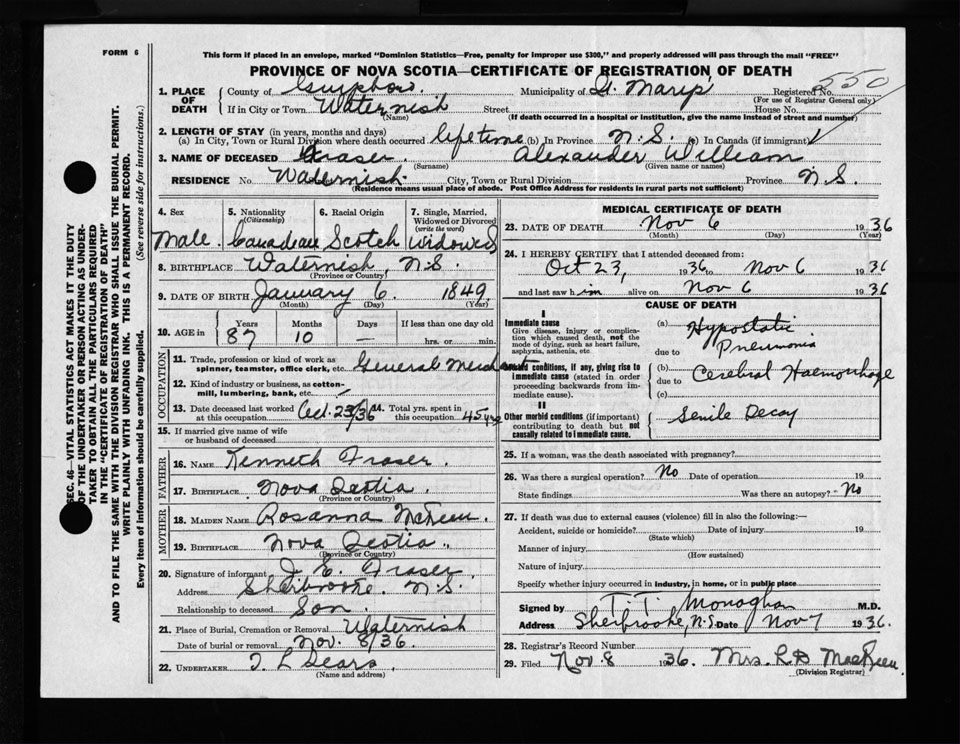 FORM 6
This form if placed in an envelope, marked "Dominion Statistics—Free, penalty for improper use $300," and properly addressed will pass through the mail "FREE"
PROVINCE OF NOVA SCOTIA—CERTIFICATE OF REGISTRATION OF DEATH
550
1. PLACE OF DEATH
County of Guysboro. Municipality of St. Marys' Registered No.
(For use of Registrar General only)
If in City or Town Waternish Street House No.
(Name) (If death occurred in a hospital or institution, give the name instead of street and number)
2. LENGTH OF STAY (in years, months and days)
(a) In City, Town or Rural Division where death occurred lifetime (b) In Province N.S. (c) In Canada (if immigrant)
3. NAME OF DECEASED Fraser. Alexander William
(Surname) (Given name or names)
RESIDENCE No. Waternish. City, Town or Rural Division Province N.S.
(Residence means usual place of abode. Post Office Address for residents in rural parts not sufficient)
4. Sex 5. Nationality (Citizenship) 6. Racial Origin 7. Single, Married, Widowed or Divorced (write the word)
Male. Canadian Scotch Widowed
8. BIRTHPLACE Waternish, N.S.
(Province or Country)
9. DATE OF BIRTH January 6. 1849.
(Month) (Day) (Year)
10. AGE in Years Months Days If less than one day old
87 10 — hrs. or min.
OCCUPATION
11. Trade, profession or kind of work as spinner, teamster, office clerk, etc. General Merchant
12. Kind of industry or business, as cotton-mill, lumbering, bank, etc. —
13. Date deceased last worked at this occupation Oct. 23/36 14. Total yrs. spent in this occupation 45 yrs
15. If married give name of wife or husband of deceased
FATHER
16. NAME Kenneth Fraser.
17. BIRTHPLACE Nova Scotia.
(Province or Country)
MOTHER
18. MAIDEN NAME Rosanna McKeen.
19. BIRTHPLACE Nova Scotia.
(Province or Country)
20. Signature of informant J. E. Fraser
Address Sherbrooke. N.S.
Relationship to deceased Son.
21. Place of Burial, Cremation or Removal Waternish
Date of burial or removal Nov. 8/36.
22. UNDERTAKER T. L. Sears.
(Name and address)
MEDICAL CERTIFICATE OF DEATH
23. DATE OF DEATH Nov 6 1936
(Month) (Day) (Year)
24. I HEREBY CERTIFY that I attended deceased from:
Oct 23, 1936 to Nov 6 1936
and last saw him alive on Nov 6 1936
CAUSE OF DEATH
I
Immediate cause
Give disease, injury or complication which caused death, not the mode of dying, such as heart failure, asphyxia, asthenia, etc.
(a) Hypostatic Pneumonia
due to
Morbid conditions, if any, giving rise to immediate cause (stated in order proceeding backwards from immediate cause).
(b) Cerebral Haemorrhage
due to
(c)
II
Other morbid conditions (if important) contributing to death but not causally related to immediate cause.
Senile Decay
25. If a woman, was the death associated with pregnancy?
26. Was there a surgical operation? No Date of operation 19
State findings Was there an autopsy? No
27. If death was due to external causes (violence) fill in also the following:—
Accident, suicide or homicide? Date of injury 19
(State which)
Manner of injury
(How sustained)
Nature of injury
Specify whether injury occurred in industry, in home, or in public place
Signed by T. T. Monaghan M.D.
Address Sherbrooke, N.S. Date Nov 7 1936.
28. Registrar's Record Number
29. Filed Nov. 8 1936. Mrs. R B MacKeen.
(Division Registrar)
SEC. 46—VITAL STATISTICS ACT MAKES IT THE DUTY
OF THE UNDERTAKER OR PERSON ACTING AS UNDER-
TAKER TO OBTAIN ALL THE PARTICULARS REQUIRED
IN THE "CERTIFICATE OF REGISTRATION OF DEATH"
AND TO FILE THE SAME WITH THE DIVISION REGISTRAR WHO SHALL ISSUE THE BURIAL PERMIT.
WRITE PLAINLY WITH UNFADING INK. THIS IS A PERMANENT RECORD.
Every item of information should be carefully supplied. (See reverse side for instructions.)